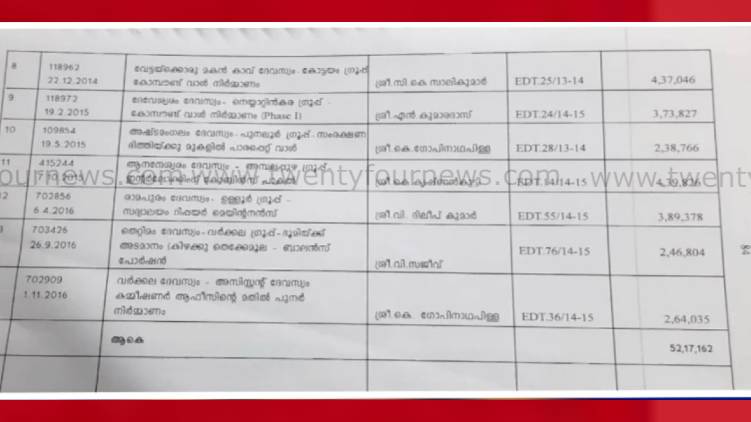 8 118962 വേട്ടയ്ക്കൊരു മകൻ കാവ് ദേവസ്വം-കോട്ടയം ഗ്രൂപ്പ്
22.12.2014 കോമ്പൗണ്ട് വാൾ നിർമ്മാണം ശ്രീ.സി കെ സാലികുമാർ EDT.25/13-14 4,37,046
9 118972 ദേവേശ്വരം ദേവസ്വം- നെയ്യാറ്റിൻകര ഗ്രൂപ്പ് -
19.2.2015 കോമ്പൗണ്ട് വാൾ നിർമ്മാണം (Phase I) ശ്രീ.എൻ കുമാരദാസ് EDT.24/14-15 3,73,827
10 109854 അഷ്ടമംഗലം ദേവസ്വം-പുനലൂർ ഗ്രൂപ്പ്-സംരക്ഷണ
19.5.2015 ഭിത്തിയ്ക്കു മുകളിൽ പാരപ്പെറ്റ് വാൾ ശ്രീ.കെ.ഗോപിനാഥപിള്ള EDT.28/13-14 2,38,766
11 415244 ദേവസ്വം - അമ്പലപ്പുഴ ഗ്രൂപ്പ്
www.twentyfournews.com
702856 രാമപുരം ദേവസ്വം- ഉള്ളൂർ ഗ്രൂപ്പ് -
6.4.2016 സദ്യാലയം റിപ്പയർ മെയിന്റനൻസ് ശ്രീ.വി. ദിലീപ് കുമാർ EDT.55/14-15 3,89,378
703426 തെറ്റിമം ദേവസ്വം-വർക്കല ഗ്രൂപ്പ്-ഭൂമിയ്ക്ക്
26.9.2016 അടമാനം (കിഴക്കു തെക്കേമൂല - ബാലൻസ് EDT.76/14-15 2,46,804
പോർഷൻ ശ്രീ.വി.സജീവ്
84
702909 വർക്കല ദേവസ്വം - അസിസ്റ്റന്റ് ദേവസ്വം
1.11.2016 കമ്മീഷണർ ആഫീസിന്റെ മതിൽ പുനർ
നിർമ്മാണം ശ്രീ.കെ. ഗോപിനാഥപിള്ള EDT.36/14-15 2,64,035
ആകെ 52,17,162